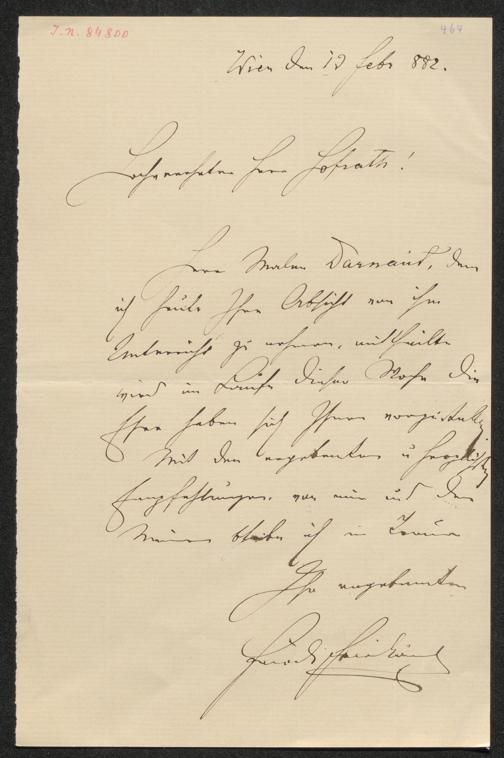 I.N. 84800
464
Wien den 13 Febr 882.
Hochverehrter Herr Hofrath!
Herr Maler Darnaut, dem
ich heute Ihre Absicht von ihm
Unterricht zu nehmen, mittheilte
wird im Laufe dieser Woche die
Ehre haben sich Ihnen vorzustellen
Mit den ergebensten u herzlichsten
Empfehlungen, von mir und den
Meinen bleibe ich in Treue
Ihr ergebenster